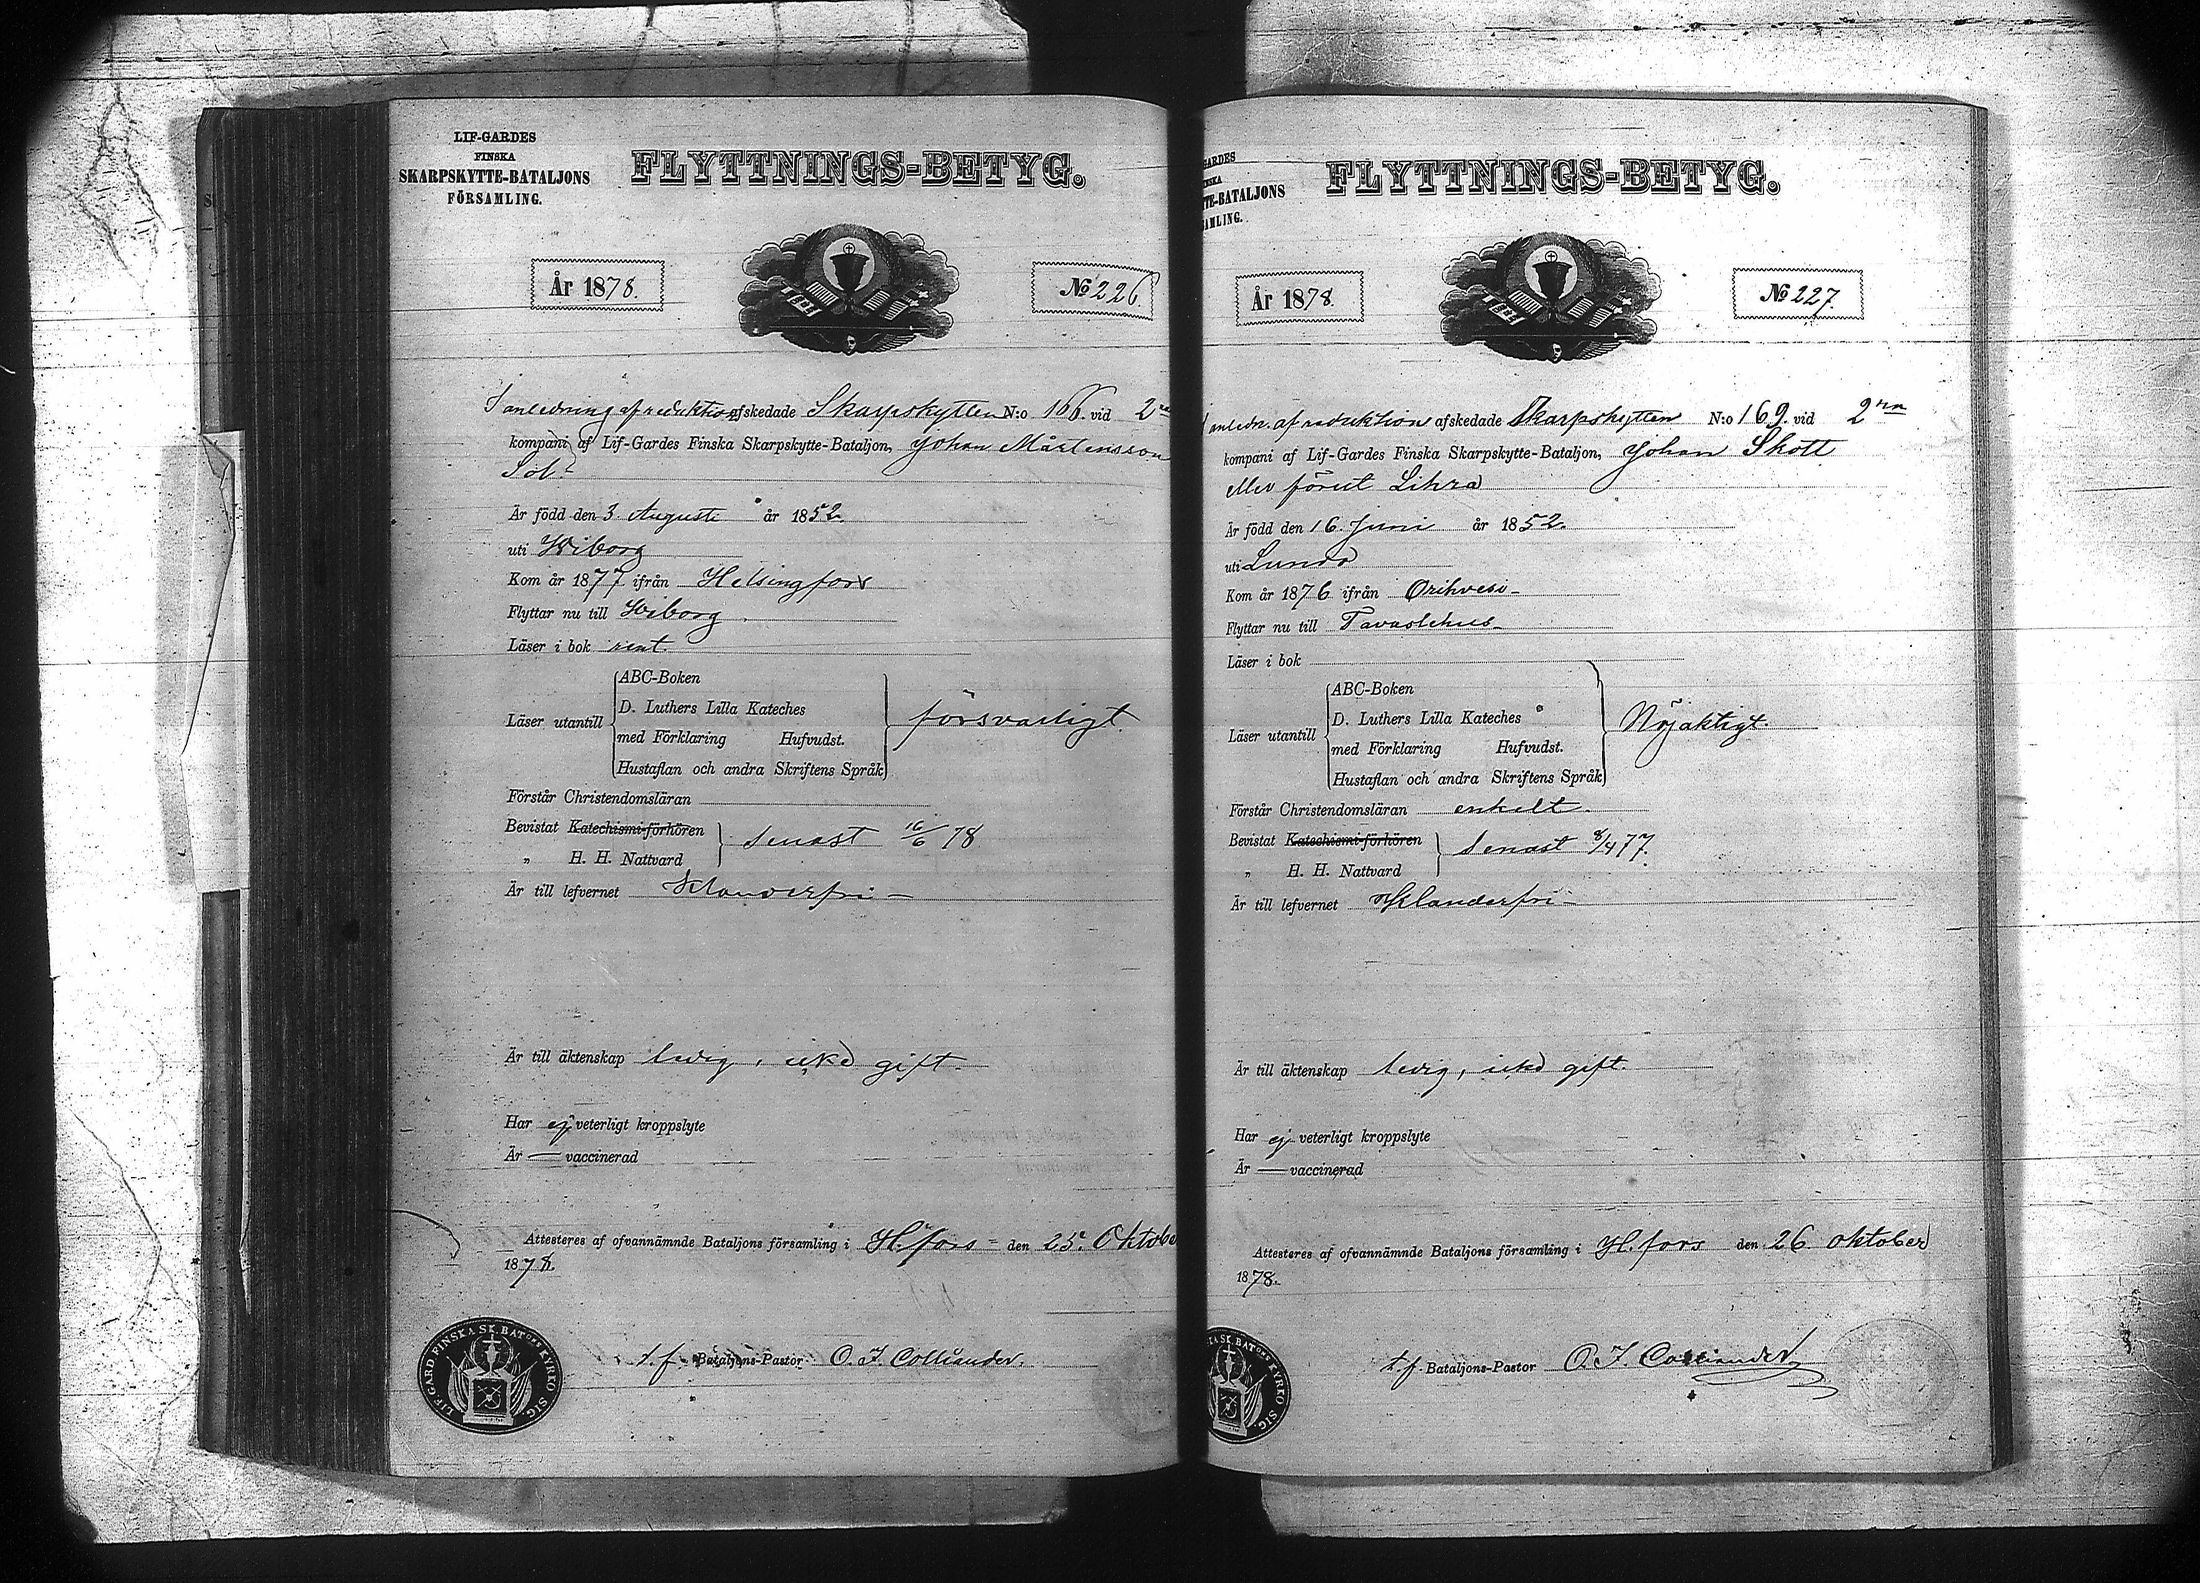 LIF-GARDES
FINSKA
SKARPSKYTTE-BATALJONS
FÖRSAMLING.
FLYTTNINGS-BETYG.
År 1878.
No 226
I anledning af reduktion afskedade Skarpskytten N:o 166. vid 2ra
kompani af Lif-Gardes Finska Skarpskytte-Bataljon, Johan Mårtensson
Är född den 3 Augusti år 1852.
uti Wiborg
Kom år 1877 ifrån Helsingfors
Flyttar nu till Wiborg
Läser i bok rent.
Läser utantill
ABC-Boken
D. Luthers Lilla Kateches
med Förklaring Hufvudst.
Hustaflan och andra Skriftens Språk
försvarligt.
Förstår Christendomsläran
Bevistat Katechismi-förhören
„ H. H. Nattvard
senast 16/6 78
Är till lefvernet Klanderfri –
Är till äktenskap ledig, icke gift.
Har ej veterligt kroppslyte
Är — vaccinerad
Attesteres af ofvannämnde Bataljons församling i H:fors den 25. Oktobe
1878.
t. f. Bataljons-Pastor O. I. Colliander.
LIF. GARD FINSKA SK. BATONS KYRKO SIG.
GARDES
NSKA
TE-BATALJONS
AMLING.
FLYTTNINGS-BETYG.
År 1878.
No 227.
anledn. af reduktion afskedade Skarpskytten N:o 169. vid 2ra
kompani af Lif-Gardes Finska Skarpskytte-Bataljon, Johan Skott
eller förut Lihra
Är född den 16. Juni år 1852.
uti
Kom år 1876 ifrån Orihvesi –
Flyttar nu till Tavastehus –
Läser i bok
Läser utantill
ABC-Boken
D. Luthers Lilla Kateches
med Förklaring Hufvudst.
Hustaflan och andra Skriftens Språk
Nöjaktigt.
Förstår Christendomsläran enkelt.
Bevistat Katechismi-förhören
„ H. H. Nattvard
senast 8/4 77.
Är till lefvernet Klanderfri –
Är till äktenskap ledig, icke gift.
Har ej veterligt kroppslyte
Är — vaccinerad
Attesteres af ofvannämnde Bataljons församling i H.fors den 26 oktober
1878.
t. f. Bataljons-Pastor O. I. Colliander
KA SK. BATONS KYRKO SIG.